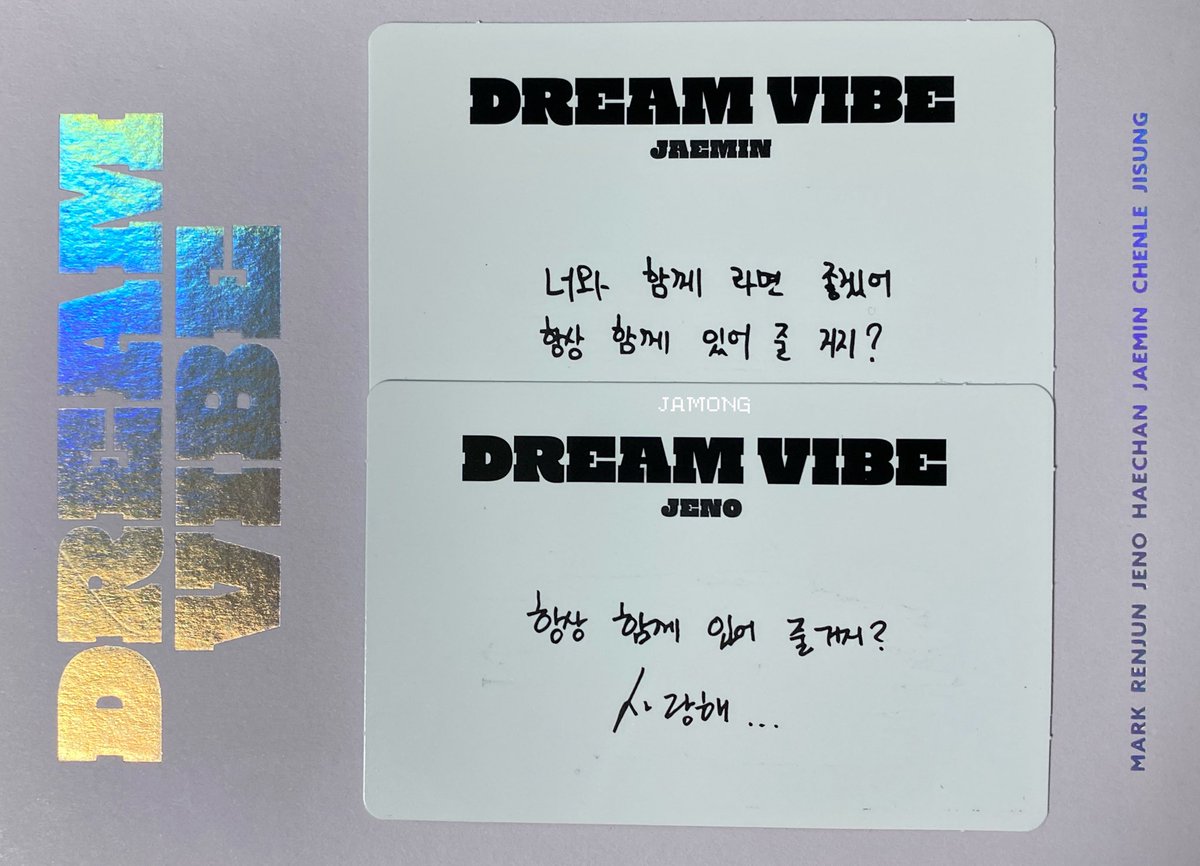 DREAM
VIBE
DREAM VIBE
JAEMIN
너와 함께 라면 좋겠어
항상 함께 있어 줄 거지?
JAMONG
DREAM VIBE
JENO
항상 함께 있어 줄거지?
사랑해...
MARK RENJUN JENO HAECHAN JAEMIN CHENLE JISUNG